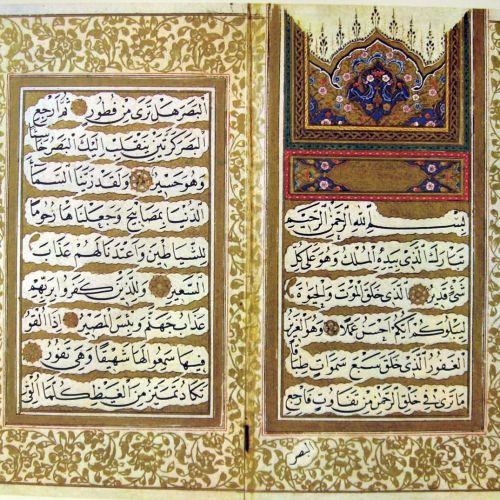 بسم الله الرحمن الرحيم
تبارك الذي بيده الملك وهو على كل
شيء قدير الذي خلق الموت والحيوة
ليبلوكم ايكم احسن عملا وهو العزيز
الغفور الذي خلق سبع سموات طباقا
ما ترى في خلق الرحمن من تفاوت فارجع
البصر
البصر هل ترى من فطور ثم ارجع
البصر كرتين ينقلب اليك البصر خاسئا
وهو حسير ولقد زينا السماء
الدنيا بمصابيح وجعلناها رجوما
للشياطين واعتدنا لهم عذاب
السعير وللذين كفروا بربهم
عذاب جهنم وبئس المصير اذا القوا
فيها سمعوا لها شهيقا وهي تفور
تكاد تميز من الغيظ كلما القي